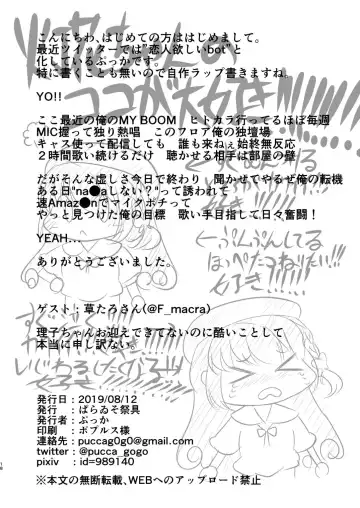 こんにちわ、はじめての方ははじめまして。
最近ツイッターでは"恋人欲しいbot"と
化しているぷっかです。
特に書くことも無いので自作ラップ書きますね。
YO!!
ここ最近の俺のMY BOOM　ヒトカラ行ってるほぼ毎週
MIC握って独り熱唱　このフロア俺の独壇場
キャス使って配信しても　誰も来ねぇ始終無反応
２時間歌い続けるだけ　聴かせる相手は部屋の壁
だがそんな虚しさ今日で終わり　聞かせてやるぜ俺の転機
ある日"na●aしない？"って誘われて
速Amaz●nでマイクポチって
やっと見つけた俺の目標　歌い手目指して日々奮闘！
YEAH...
ありがとうございました。
ゲスト：草たろさん(@F_macra)
理子ちゃんお迎えできてないのに酷いことして
本当に申し訳ない。
発行日：2019/08/12
発行　：ばらゐそ祭具
発行者：ぷっか
印刷　：ポプルス様
連絡先：puccag0g0@gmail.com
twitter：@pucca_gogo
pixiv　：id=989140
※本文の無断転載、WEBへのアップロード禁止
ココが大好き!!!!
←ぷんぷんしてる
ほっぺたつねりたい!!
好き!!!!